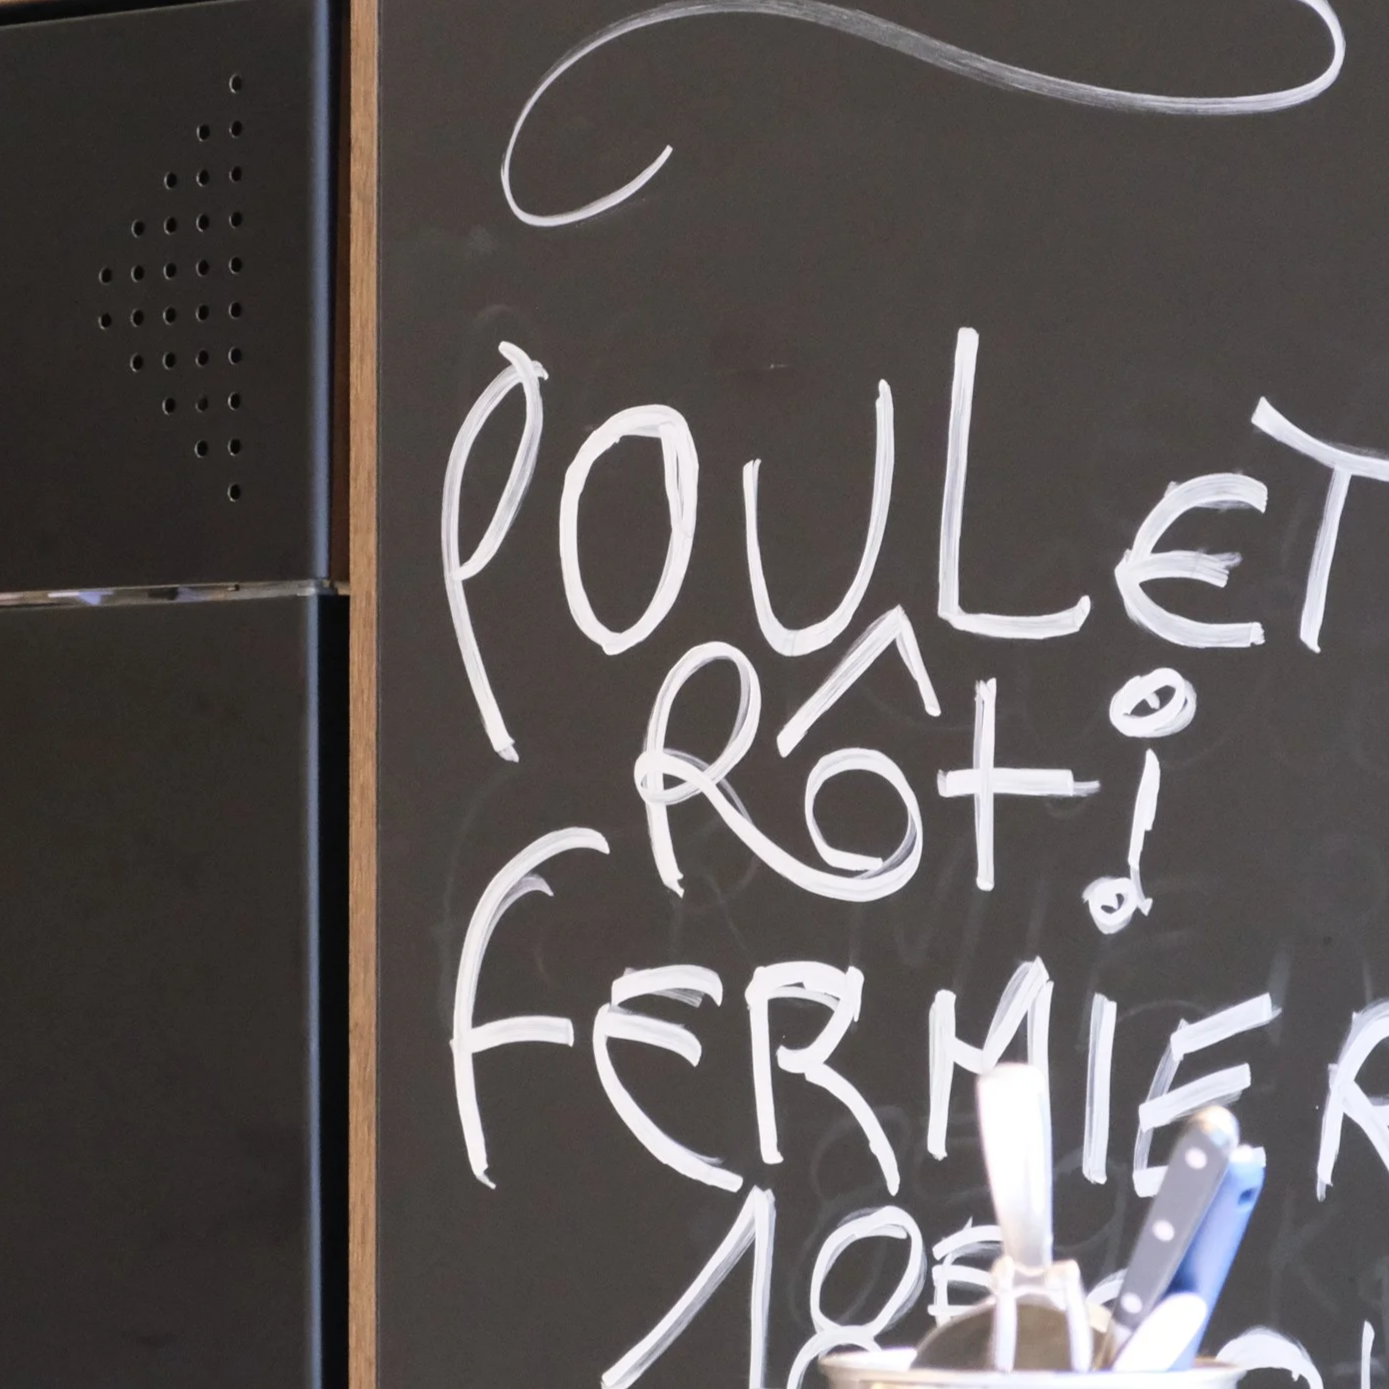 POULET
Rôti
FERMIER
18€